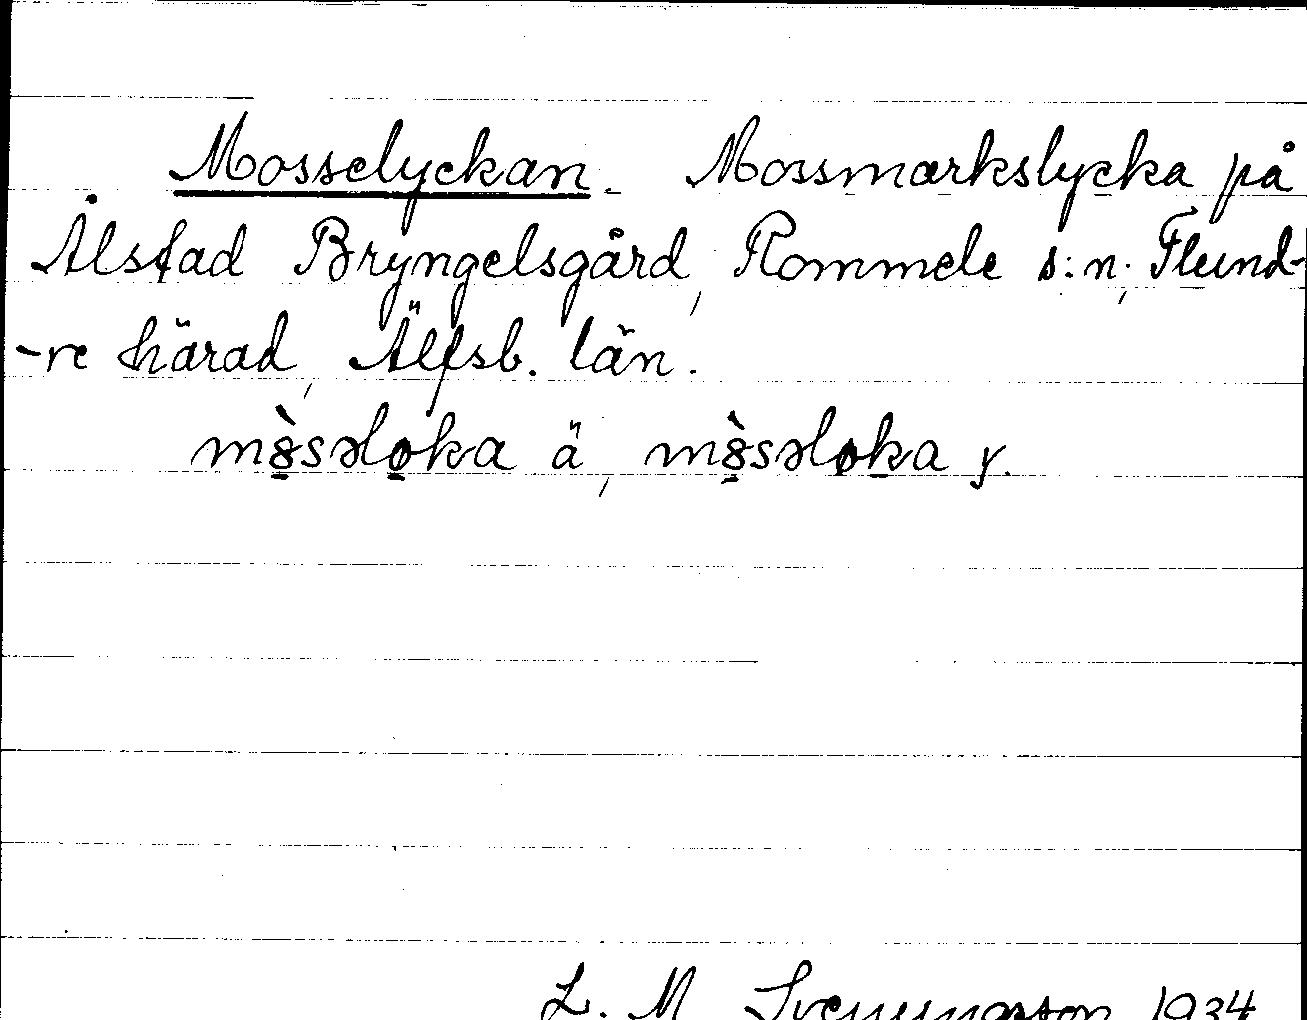 Mosselyckan. Mossmarkslycka på
Ålstad Bryngelsgård, Rommele s:n, Flund-
-re härad, Älfsb. län.
mòsəloka ä, mòsəloka y.
L. M Svenungsson 1934